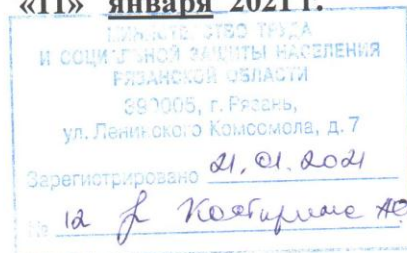 «11» января 2021 г.
МИНИСТЕРСТВО ТРУДА
И СОЦИАЛЬНОЙ ЗАЩИТЫ НАСЕЛЕНИЯ
РЯЗАНСКОЙ ОБЛАСТИ
390005, г. Рязань,
ул. Ленинского Комсомола, д. 7
Зарегистрировано 21.01.2021
№ 12